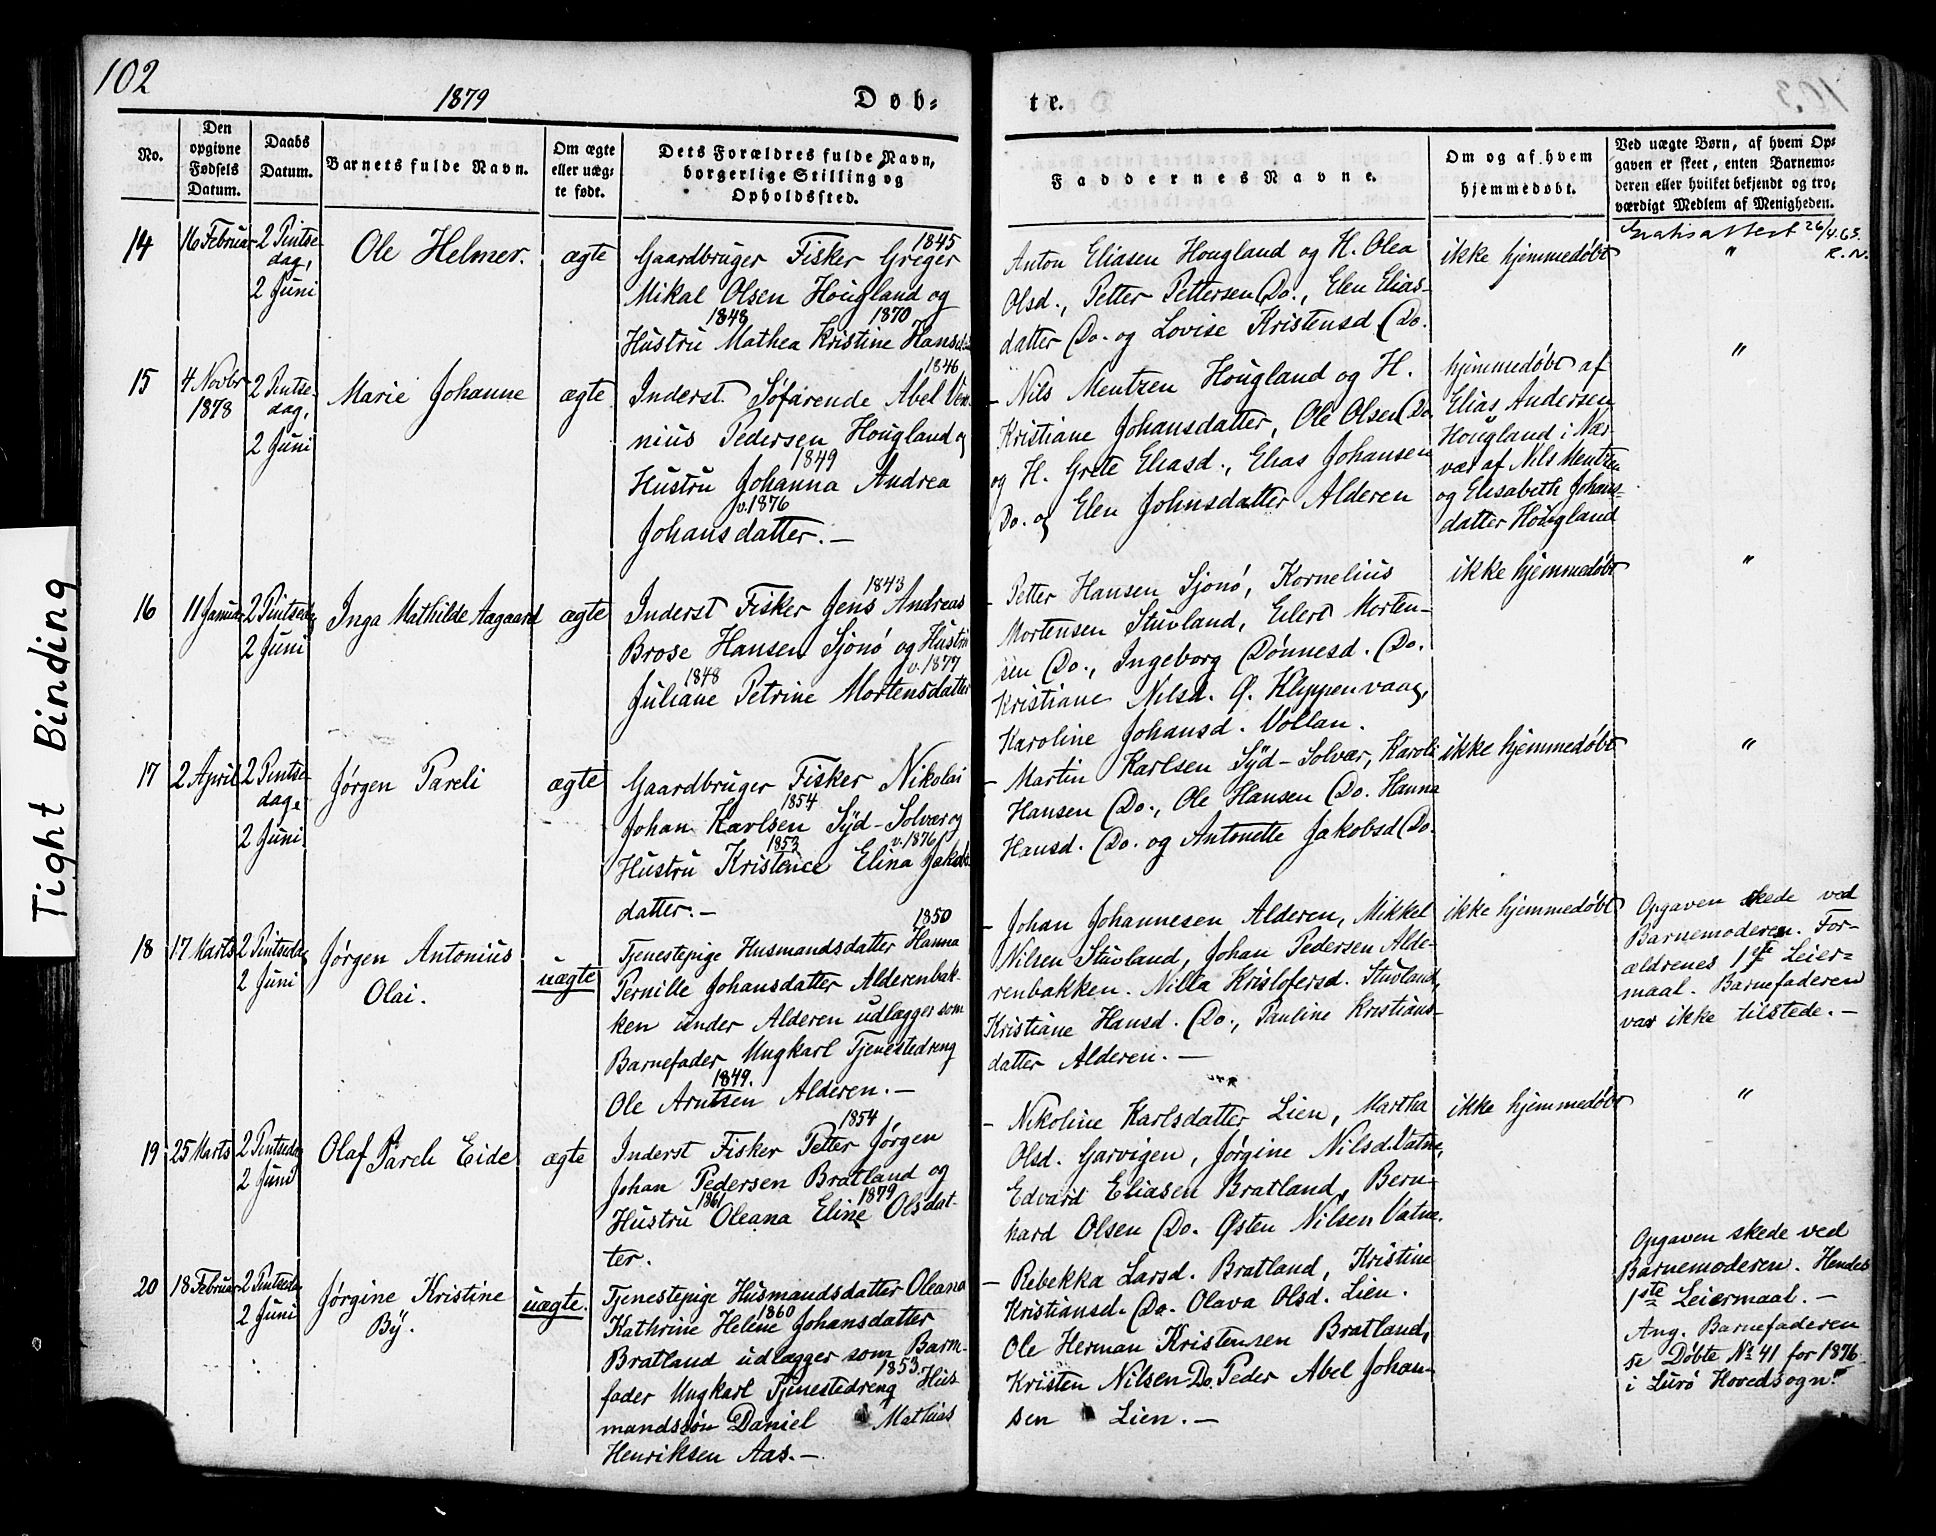 102
1879
Døb-
te.
103
No.
Den
opgivne
Fødsels
Datum.
Daabs
Datum.
Barnets fulde Navn.
Om ægte
eller uæg-
te født.
Dets Forældres fulde Navn,
borgerlige Stilling og
Opholdssted.
Faddernes Navne.
Om og af hvem
hjemmedøbt.
Ved uægte Børn, af hvem Op-
gaven er skeet, enten Barnemo-
deren eller hvilket bekjendt og tro-
værdigt Medlem af Menigheden.
14
16 Februar
2 Pintse-
dag,
2 Juni
Ole Helmer.
ægte
1845
Gaardbruger Fisker Greger
Mikal Olsen Hougland og
1848 1870
Hustru Mathea Kristine Hansd.
Anton Eliasen Hougland og H. Olea
Olsd., Petter Pettersen Do., Elen Elias-
datter Do. og Lovise Kristensd Do.
ikke hjemmedøbt
Gratisattest 26/4.63.
" R.N.
15
4 Novbr
1878
2 Pintse-
dag,
2 Juni
Marie Johanne
ægte
1846
Inderst Søfarende Abel Ven-
nius Pedersen Hougland og
1849
Hustru Johanna Andrea
v. 1876
Johansdatter. —
- Nils Mentzen Hougland og H.
Kristiane Johansdatter, Ole Olsen Do
og H. Grete Eliasd., Elias Johansen
Do. og Elen Johnsdatter Alderen
hjemmedøbt af
Elias Andersen
Hougland i Nær-
vær af Nils Mentzen
og Elisabeth Johans-
datter Hougland
"
16
11 Januar
2 Pintsedag
2 Juni
Inga Mathilde Aagaard
ægte
1843
Inderst Fisker Jens Andreas
Brose Hansen Sjonø og Hustru
1848 v. 1877
Juliane Petrine Mortensdatter
- Petter Hansen Sjonø, Kornelius
Mortensen Stuvland, Eilert Morten-
sen Do., Ingeborg Dønnesd. Do.
Kristiane Nilsd. G. Klippenvaag,
Karoline Johansd. Vollan.
ikke hjemmedøbt
"
17
2 April
2 Pintse-
dag.
2 Juni
Jørgen Pareli
ægte
Gaardbruger Fisker Nikolai
1854
Johan Karlsen Syd-Solvær og
1853 v. 1876
Hustru Kristence Elina Jakobs-
datter. —
- Martin Karlsen Syd-Solvær, Karoli
Hansen Do., Ole Hansen Do. Hanna
Hansd. Do. og Antonette Jakobsd Do.
ikke hjemmedøbt
"
18
17 Marts
2 Pintsedag
2 Juni
Jørgen Antonius
Olai.
uægte
1850
Tjenestepige Husmandsdatter Hanna
Pernille Johansdatter Alderenbak-
ken under Alderen udlægger som
Barnefader Ungkarl Tjenestedreng
1849.
Ole Arntsen Alderen. —
- Johan Johannesen Alderen, Mikkel
Nilsen Stuvland, Johan Pedersen Alde-
renbakken. Nilla Kristofersd. Stuvland,
Kristiane Hansd. Do., Pauline Kristians-
datter Alderen. —
ikke hjemmedøbt
Opgaven skede ved
Barnemoderen. For-
ældrenes 1ste Leier-
maal. Barnefaderen
var ikke tilstede. —
19
25 Marts
2 Pintsedag
2 Juni
Olaf Pareli Eide
ægte
1854
Inderst Fisker Petter Jørgen
Johan Pedersen Bratland og
1861 1879
Hustru Oleana Eline Olsdat-
ter.
- Nikoline Karlsdatter Lien, Martha
Olsd. Garvigen, Jørgine Nilsd. Vatne,
Edvard Eliasen Bratland, Bern-
hard Olsen Do. Østen Nilsen Vatne.
ikke hjemmedøbt
"
20
18 Februar
2 Pintsedag
2 Juni
Jørgine Kristine
By.
uægte.
Tjenestepige Husmandsdatter Oleana
1860
Kathrine Helene Johansdatter
Bratland udlægger som Barn-
1853.
fader Ungkarl Tjenestedreng Hus-
mandssøn Daniel Mathias
Henriksen Aas. —
- Rebekka Larsd. Bratland, Kristine
Kristiansd. Do. Olava Olsd. Lien.
Ole Herman Kristensen Bratland,
Kristen Nilsen Do. Peder Abel Johan-
sen Lien. —
Opgaven skede ved
Barnemoderen. Hendes
1ste Leiermaal. —
Ang. Barnefaderen
se Døbte No 41 for 1876
i Lurø Hovedsogn.
Tight Binding